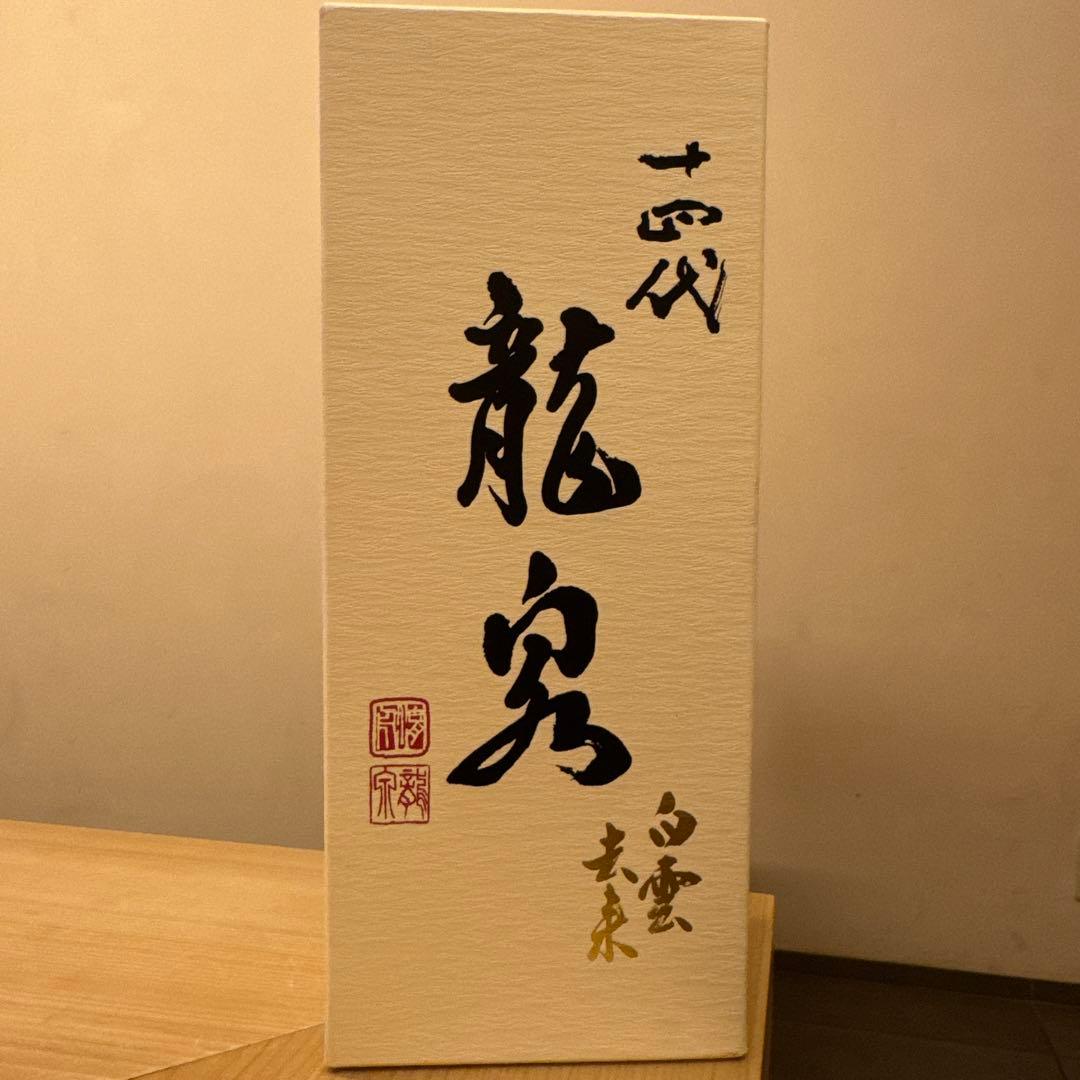 十四代
龍泉
白雲
去来